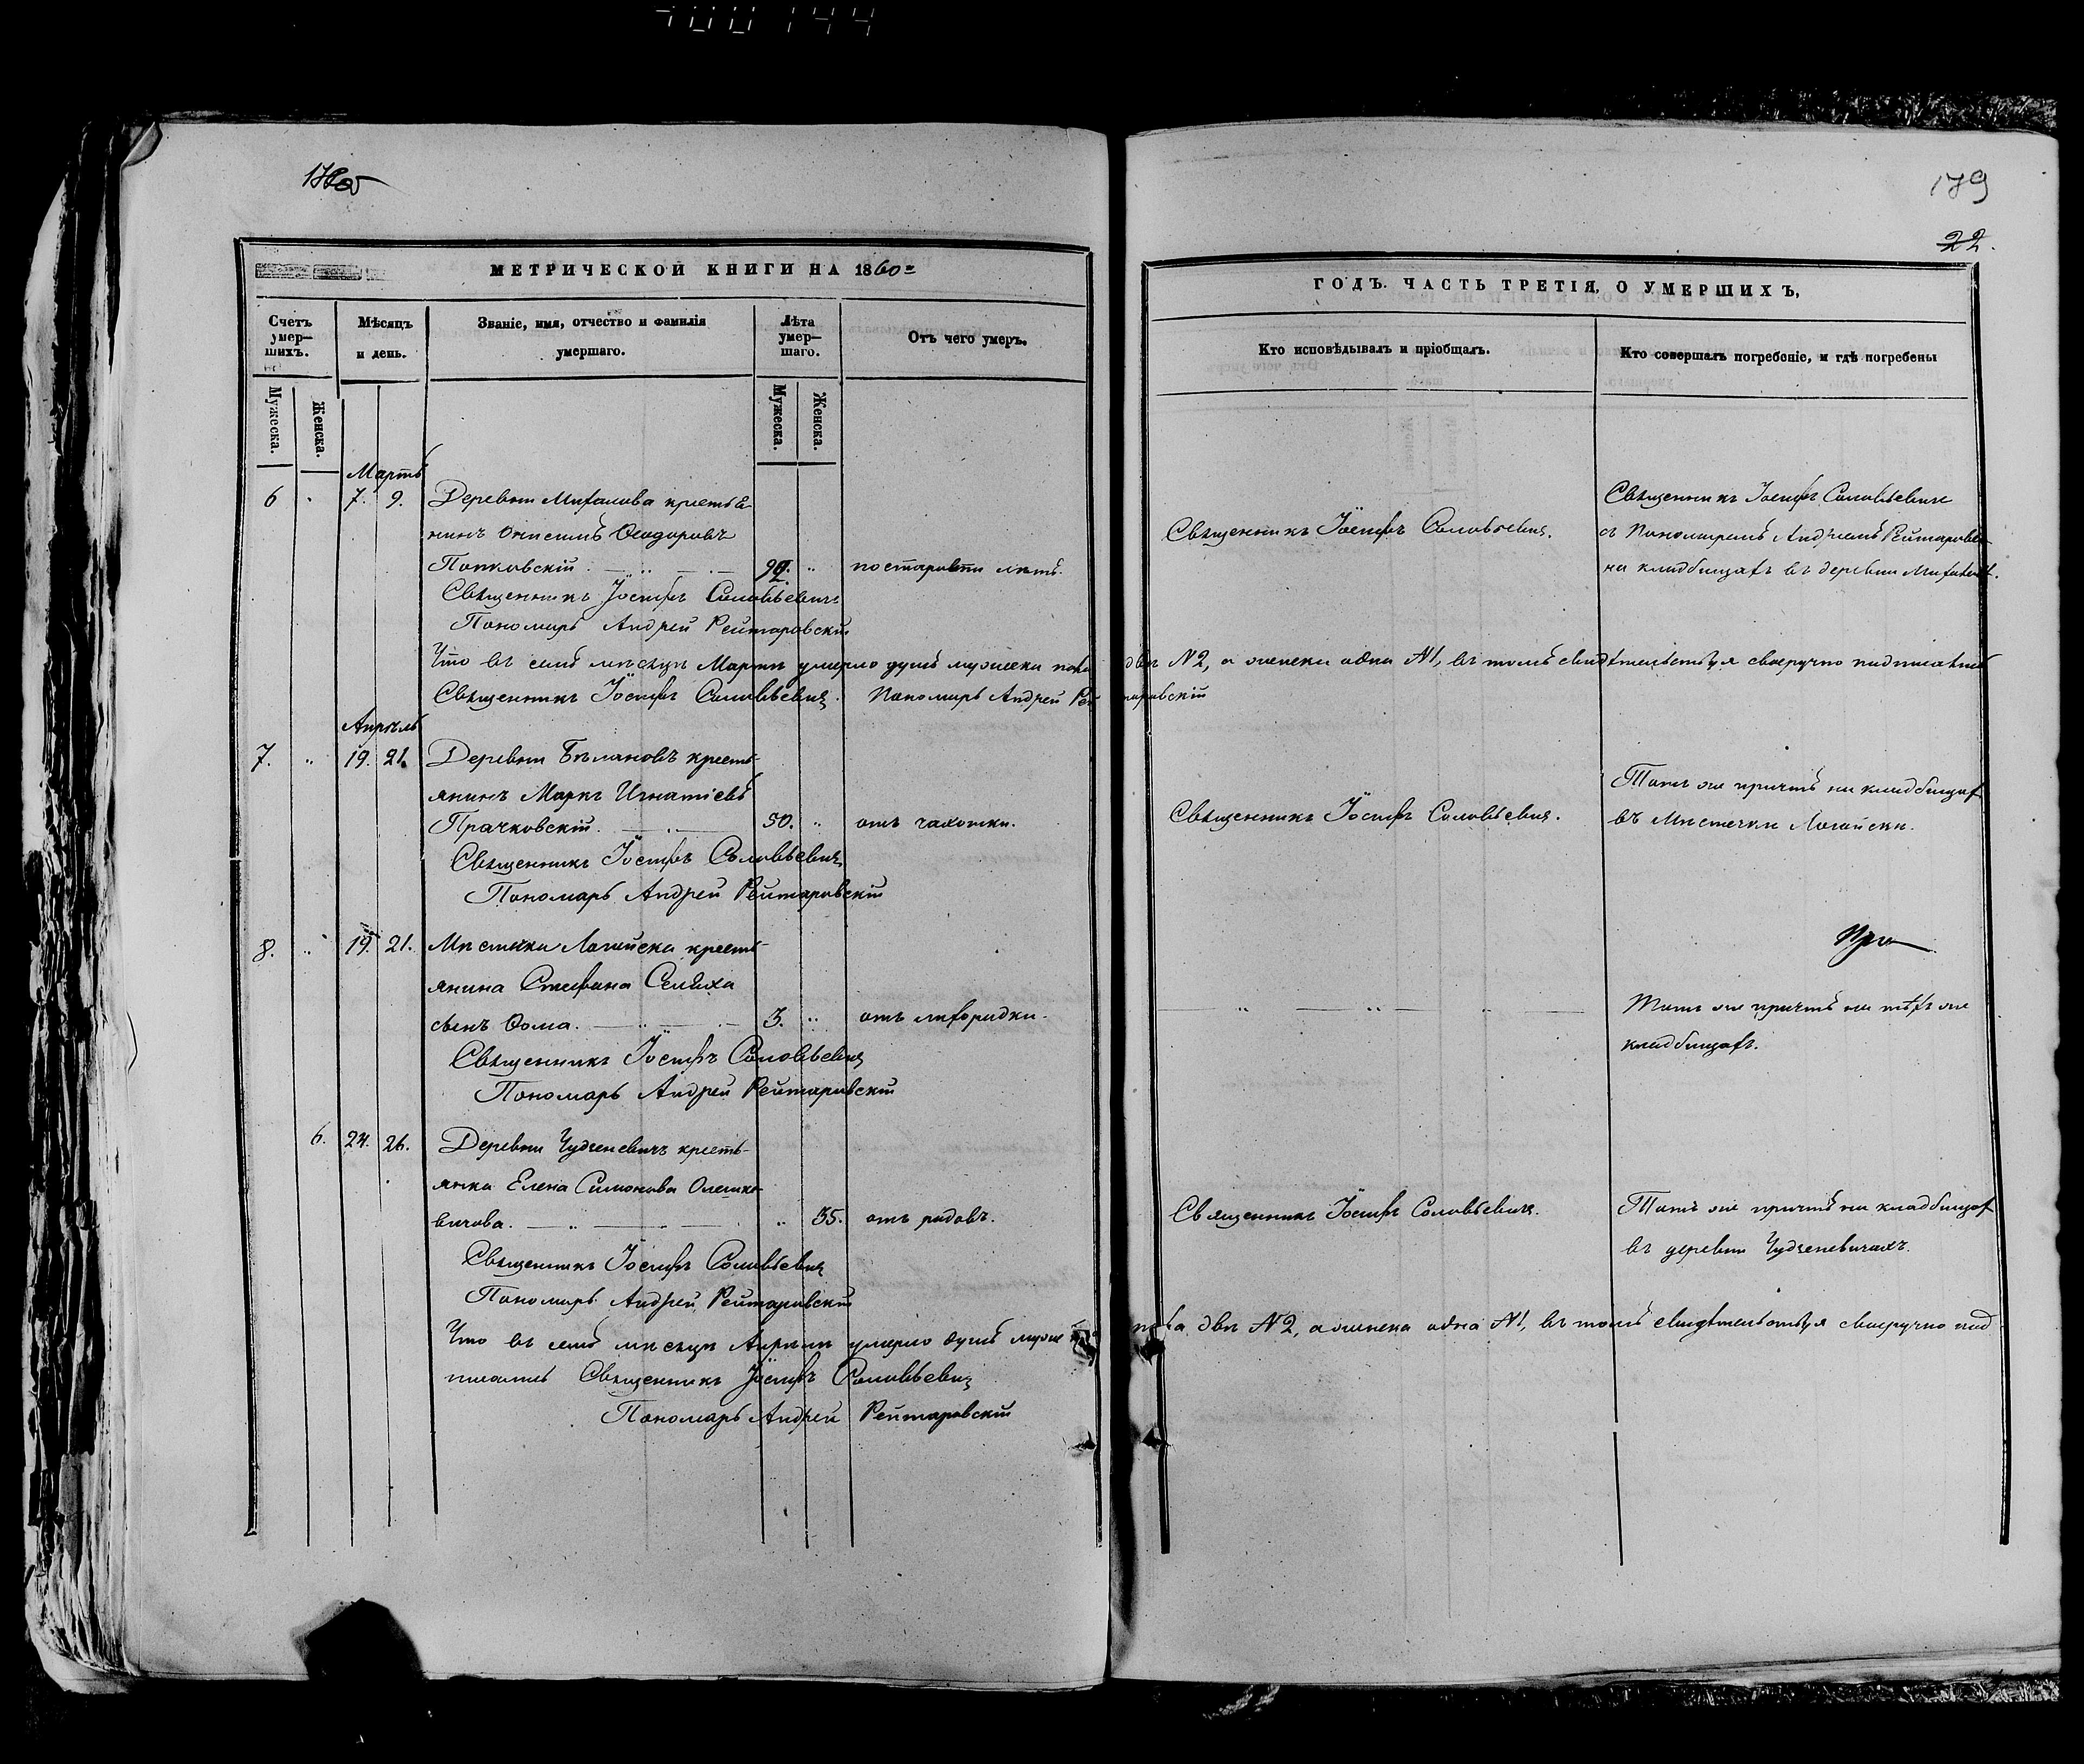 179
22.
МЕТРИЧЕСКОЙ КНИГИ НА 1860й
ГОДЪ. ЧАСТЬ ТРЕТІЯ, О УМЕРШИХЪ,
Счетъ умер—шихъ.
Мѣсяцъ и день.
Званіе, имя, отчество и фамилія умершаго.
Лѣта умер—шаго.
Отъ чего умеръ.
Кто исповѣдывалъ и пріобщалъ.
Кто совершалъ погребеніе, и гдѣ погребены
Мужеска.
Женска.
Мужеска.
Женска.
Мартъ
6 " 7. 9. Деревни крестья-
нинъ Онисимъ Ѳеодоровъ
Попковскій. " по старости лѣтъ.
Священникъ Іосифъ Соловьевичъ
Пономарь Андрей Рейтаровскій
Священникъ Іосифъ Соловьевичъ.
Священникъ Іосифъ Соловьевичъ
съ Пономаремъ Андреемъ
на кладбищахъ въ деревни
Что въ семъ мѣсяцѣ Мартѣ умерло душъ мужеска пола двѣ №2, а женска одна №1, въ томъ свидѣтельствуя своеручно подписались
Священникъ Іосифъ Соловьевичъ. Пономарь Андрей Рейтаровскій
Апрѣль
7. " 19. 21. Деревни Бѣмановъ кресть-
янинъ Маркъ Игнатіевъ
Прачковскій. 50. " отъ чахотки.
Священникъ Іосифъ Соловьевичъ
Пономарь Андрей Рейтаровскій
Священникъ Іосифъ Соловьевичъ.
Тотъ же причтъ на кладбищахъ
въ Мѣстечки Логойски.
8. " 19. 21. Мѣстечка Логойска кресть-
янина Стефана Селюха
сынъ Ѳома. 3. " отъ лихорадки.
Священникъ Іосифъ Соловьевичъ
Пономарь Андрей Рейтаровскій
Тотъ же причтъ на тѣхъ же
кладбищахъ.
6. 24. 26. Деревни Чудзеневичъ кресть-
янка Елена Симонова Олешке-
вичова. " 35. отъ родовъ.
Священникъ Іосифъ Соловьевичъ
Пономарь Андрей Рейтаровскій
Священникъ Іосифъ Соловьевичъ.
Тотъ же причтъ на кладбищахъ
въ деревни Чудзеневичахъ.
Что въ семъ мѣсяцѣ Апрѣлѣ умерло душъ мужеска пола двѣ №2, а женска одна №1, въ томъ свидѣтельствуя своеручно под
писались Священникъ Іосифъ Соловьевичъ
Пономарь Андрей Рейтаровскій